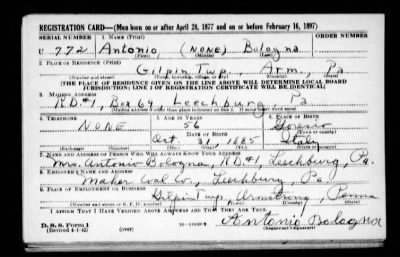 REGISTRATION CARD—(Men born on or after April 28, 1877 and on or before February 16, 1897)
SERIAL NUMBER 1. NAME (Print) ORDER NUMBER
U 772 Antonio (NONE) Bologna
(First) (Middle) (Last)
2. PLACE OF RESIDENCE (Print)
Gilpin Twp. Arm., Pa
(Number and street) (Town, township, village, or city) (County) (State)
[THE PLACE OF RESIDENCE GIVEN ON THE LINE ABOVE WILL DETERMINE LOCAL BOARD
JURISDICTION; LINE 2 OF REGISTRATION CERTIFICATE WILL BE IDENTICAL]
3. MAILING ADDRESS
R.D.#1, Box 69, Leechburg, Pa
4. TELEPHONE 5. AGE IN YEARS 6. PLACE OF BIRTH
NONE 56
DATE OF BIRTH (Town or county)
Oct 31 1885 Italy
7. NAME AND ADDRESS OF PERSON WHO WILL ALWAYS KNOW YOUR ADDRESS
Mrs. Antonio Bologna, R.D.#1, Leechburg, Pa.
8. EMPLOYER'S NAME AND ADDRESS
Maher Coal Co., Leechburg, Pa.
9. PLACE OF EMPLOYMENT OR BUSINESS
Gilpin Twp. Armstrong, Penna
(Number and street or R. F. D. number) (Town) (County) (State)
I AFFIRM THAT I HAVE VERIFIED ABOVE ANSWERS AND THAT THEY ARE TRUE.
D. S. S. Form 1 Antonio Bologna
(Revised 4-1-42) (over) (Registrant's signature)